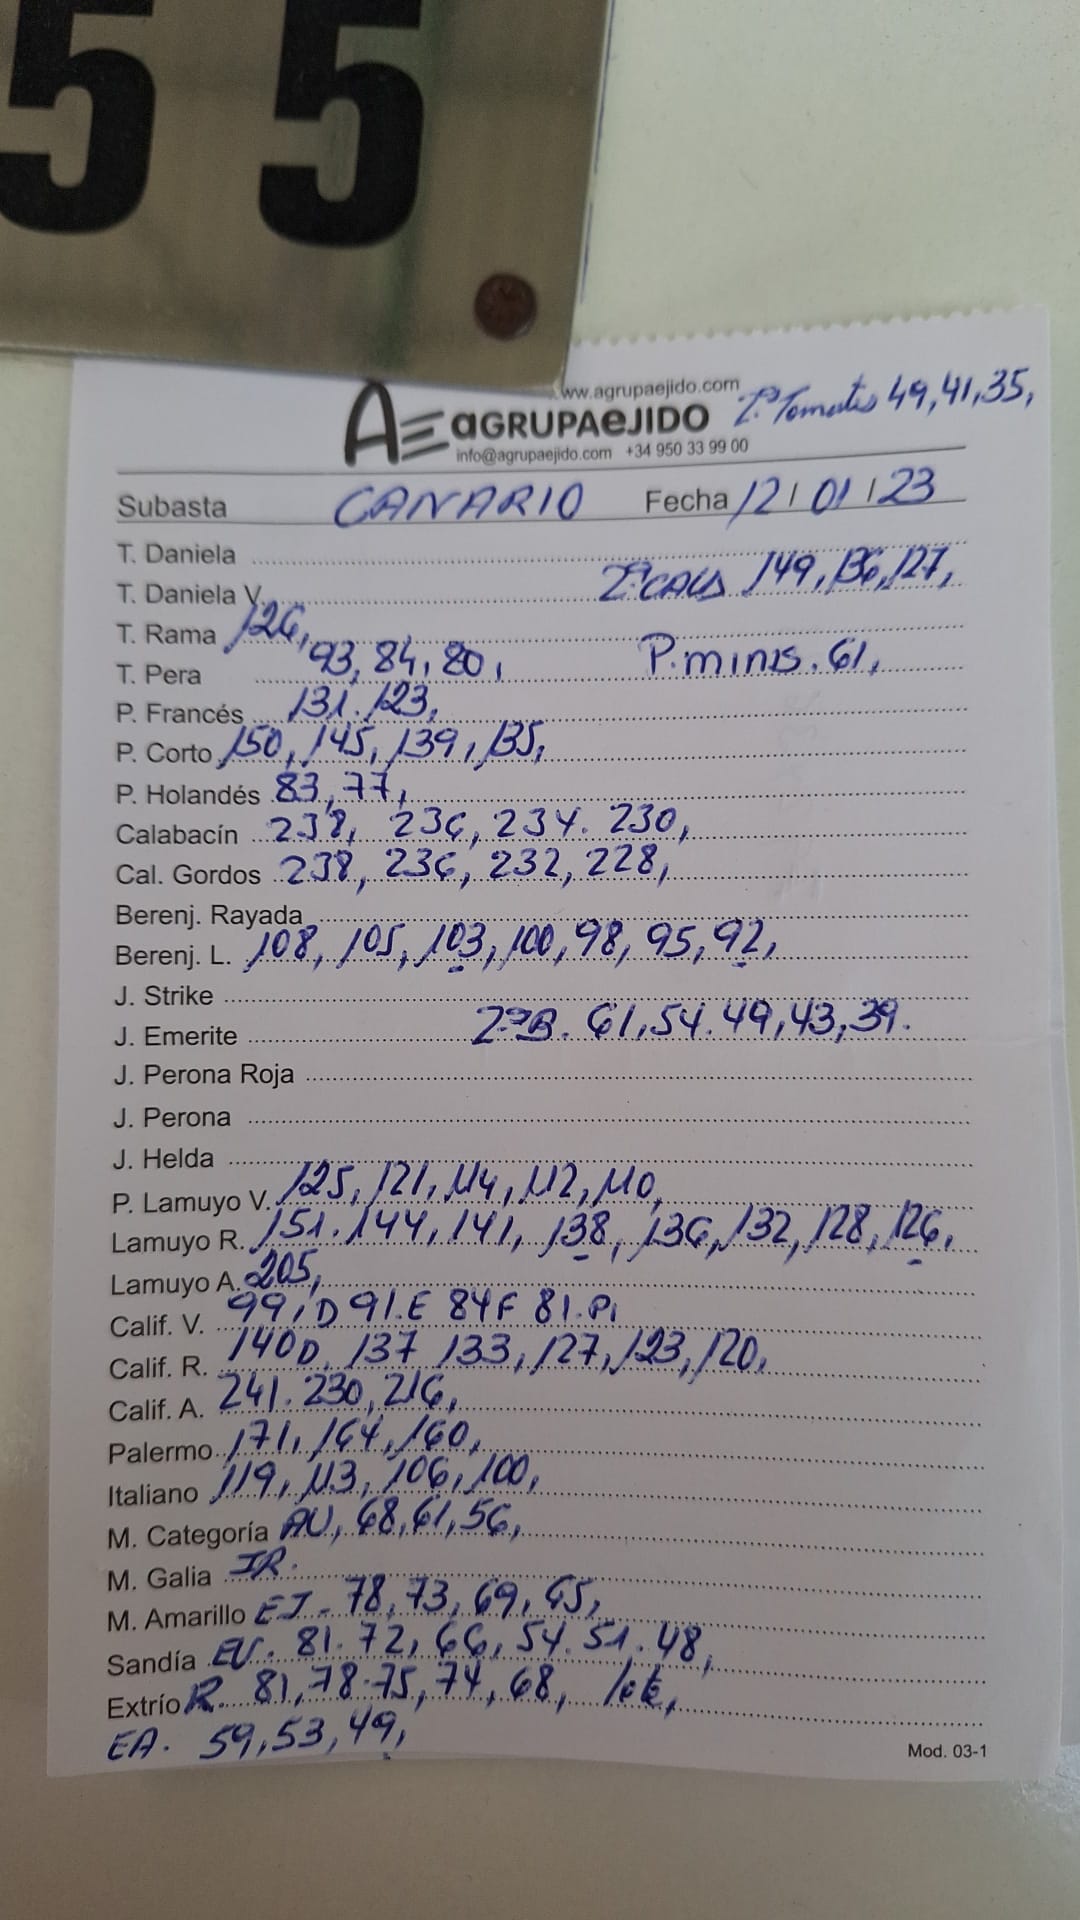 55
www.agrupaejido.com
AE aGRUPAeJIDO
2ª Tomates 49, 41, 35,
info@agrupaejido.com +34 950 33 99 00
Subasta CANARIO Fecha 12 / 01 / 23
T. Daniela
T. Daniela V. 2ª CALS 149, 136, 127,
T. Rama 126,
T. Pera 93, 84, 80, P. minis. 61,
P. Francés 131. 123,
P. Corto 150, 145, 139, 135,
P. Holandés 83, 77,
Calabacín 238, 236, 234. 230,
Cal. Gordos 238, 236, 232, 228,
Berenj. Rayada
Berenj. L. 108, 105, 103, 100, 98, 95, 92,
J. Strike
J. Emerite 2ª B. 61, 54. 49, 43, 39.
J. Perona Roja
J. Perona
J. Helda
P. Lamuyo V. 125, 121, 114, 112, 110,
Lamuyo R. 151. 144, 141, 138, 136, 132, 128, 126,
Lamuyo A. 205,
Calif. V. 99, D 91. E 84 F 81. Pi
Calif. R. 140 D, 137 133, 127, 123, 120,
Calif. A. 241. 230, 216,
Palermo 171, 164, 160,
Italiano 119, 113, 106, 100,
M. Categoría AU, 68, 61, 56,
M. Galia IR.
M. Amarillo EJ - 78, 73, 69, 65,
Sandía EV. 81. 72, 66, 54. 51. 48,
Extrío R. 81, 78. 75, 74, 68,
EA. 59, 53, 49,
Mod. 03-1